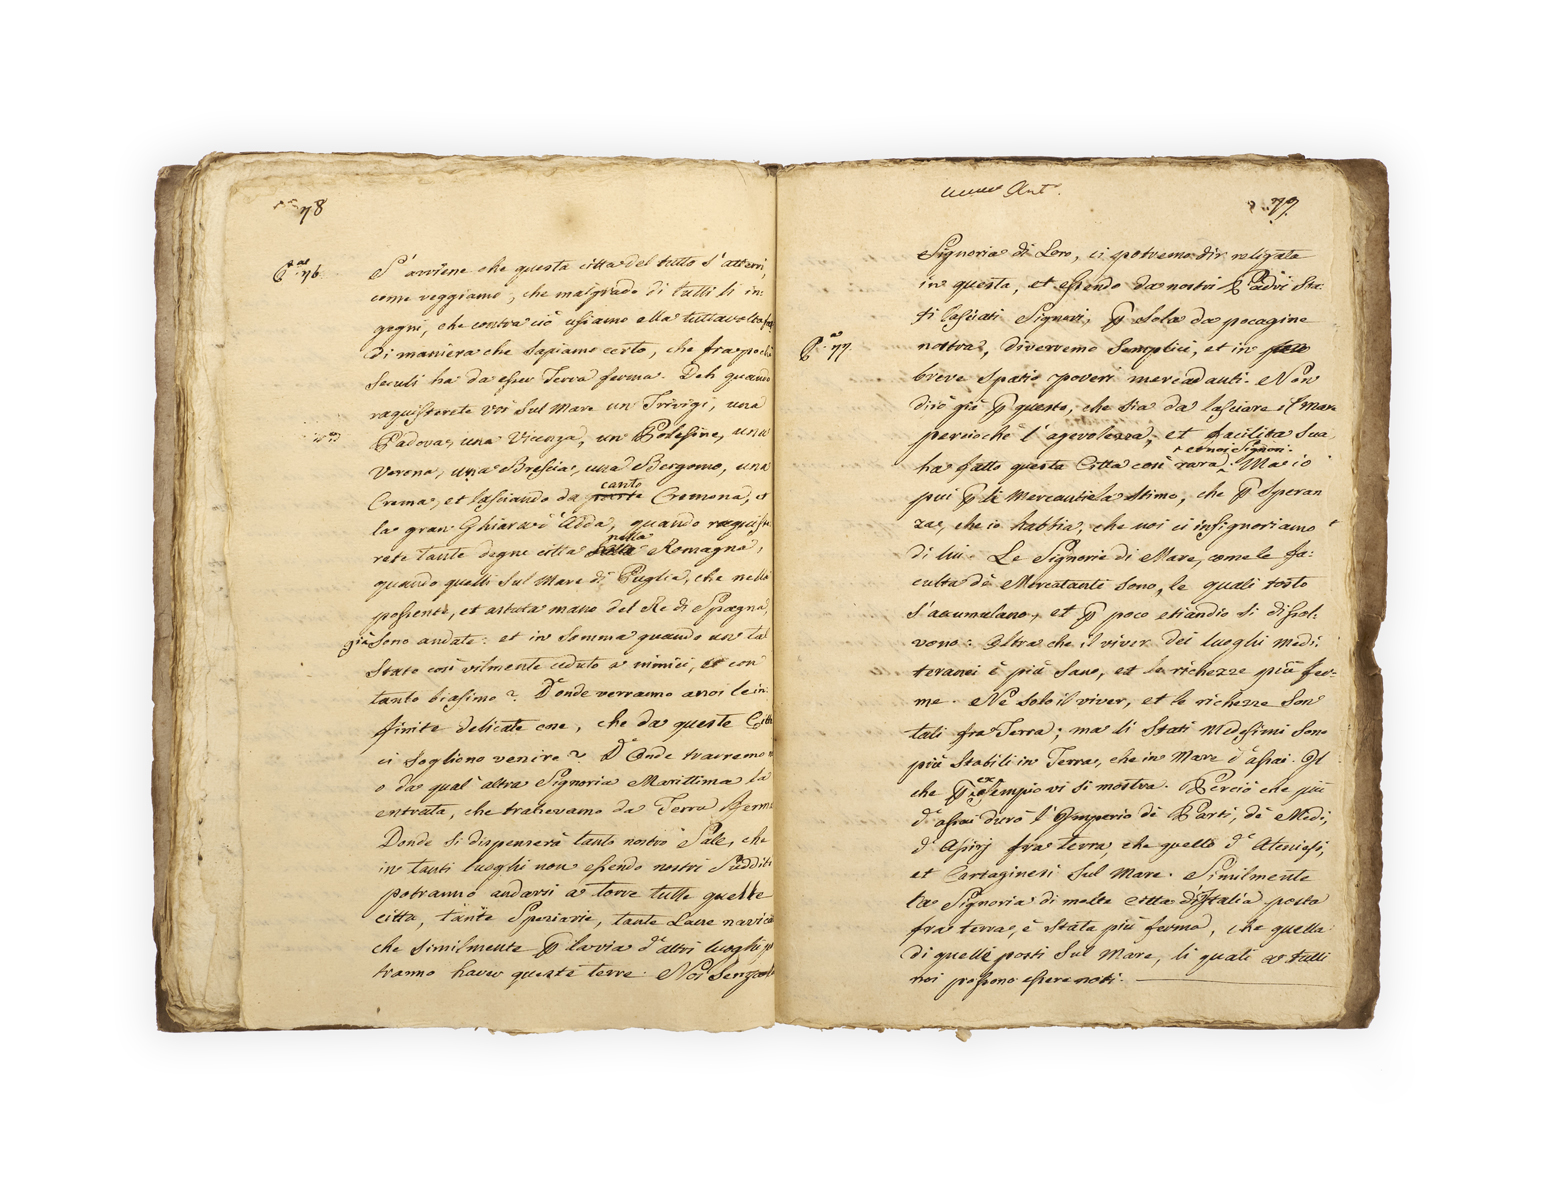 78
C. 76.
S'avviene che questa citta del tutto s'atterri,
come veggiamo, che malgrado di tutti li in:
gegni, che contra ciò usiamo ella tuttavolta
di maniera che sapiamo certo, che fra pochi
seculi ha da esser Terra ferma. Deh quando
raquisterete voi sul Mare un Trivigi, una
Padova, una Vicenza, un Polesine, una
Verona, una Brescia, una Bergomo, una
Crema, et lasciando da canto Cremona, et
la gran Ghiara d'Adda, quando raquiste
rete tante degne citta nella Romagna,
quando quelli sul Mare di Puglia, che nella
possente, et astuta mano del Re di Spagna,
già sono andate: et in somma quando un tal
stato così vilmente ceduto a nimici, et con
tanto biasimo? D'onde verranno a noi le in:
finite delicate cose, che da queste Citta
ci sogliono venire? D'onde trarremo
o da qual' altra Signoria Marittima la
entrata, che trahevamo da Terra ferma
Donde si dispenserà tanto nostro Sale, che
in tanti luoghi non essendo nostri Sudditi
potranno andarsi a torre tutte queste
citta, tante Speziarie, tante Lane
che similmente ꝑ la via d'altri luoghi po
tranno haver queste terre. Noi senza la
Ant.
77.
Signoria di Loro, ci potremo dir religata
in questa, et essendo da nostri Padri sta:
ti lasciati Signori, ꝑ sola da pocagine
C. 77.
nostra, diverremo semplici, et in
breve spatio poveri mercadanti. Non
dirò già ꝑ questo, che sia da lasciare il mare
percioche l'agevolezza, et facilita sua
+ et noi Signori.
ha fatto questa Citta così rara. Ma io
più ꝑ li Mercantie la stimo, che ꝑ speran
za, che io habbia, che noi ci insignoriamo
di lui. Le Signorie di Mare, come le fa:
culta dè Mercatanti sono, le quali tosto
s'accumulano, et ꝑ poco etiandio si dissol:
vono: Oltra che il viver dei luoghi medi:
teranei è più sano, et le richezze più fer:
me. Nè solo il viver, et le richezze son
tali fra Terra; ma li Stati Medesimi sono
più stabili in Terra, che in Mare d'assai. Il
che ꝑ exempio vi si mostra. Perciò che più
d'assai durò l'Imperio dè Parti, dè Medi,
d'Assirj fra terra, che quello d'Ateniesi,
et Cartaginesi sul mare. Similmente
la Signoria di molte citta d'Italia posta
fra terra, è stata più ferma, che quella
di quelle posti sul Mare, li quali a tutti
noi possono essere noti.